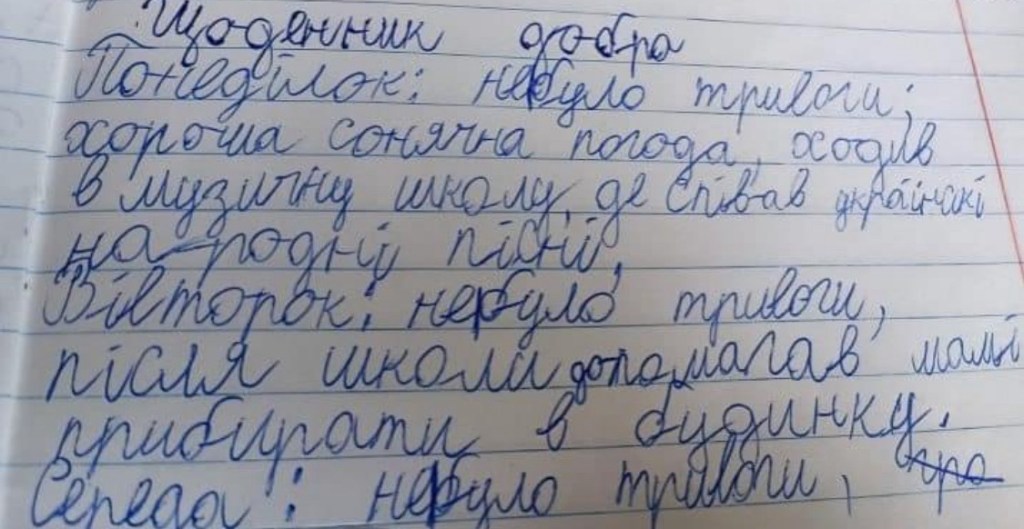 Щоденник добра
Понеділок: небуло тривоги;
хороша сонячна погода, ходив
в музичну школу, де співав українскі
на-родні пісні,
Вівторок: небуло тривоги,
після школи допомагав мамі
прибирати в будинку.
Середа: небуло тривоги, гра